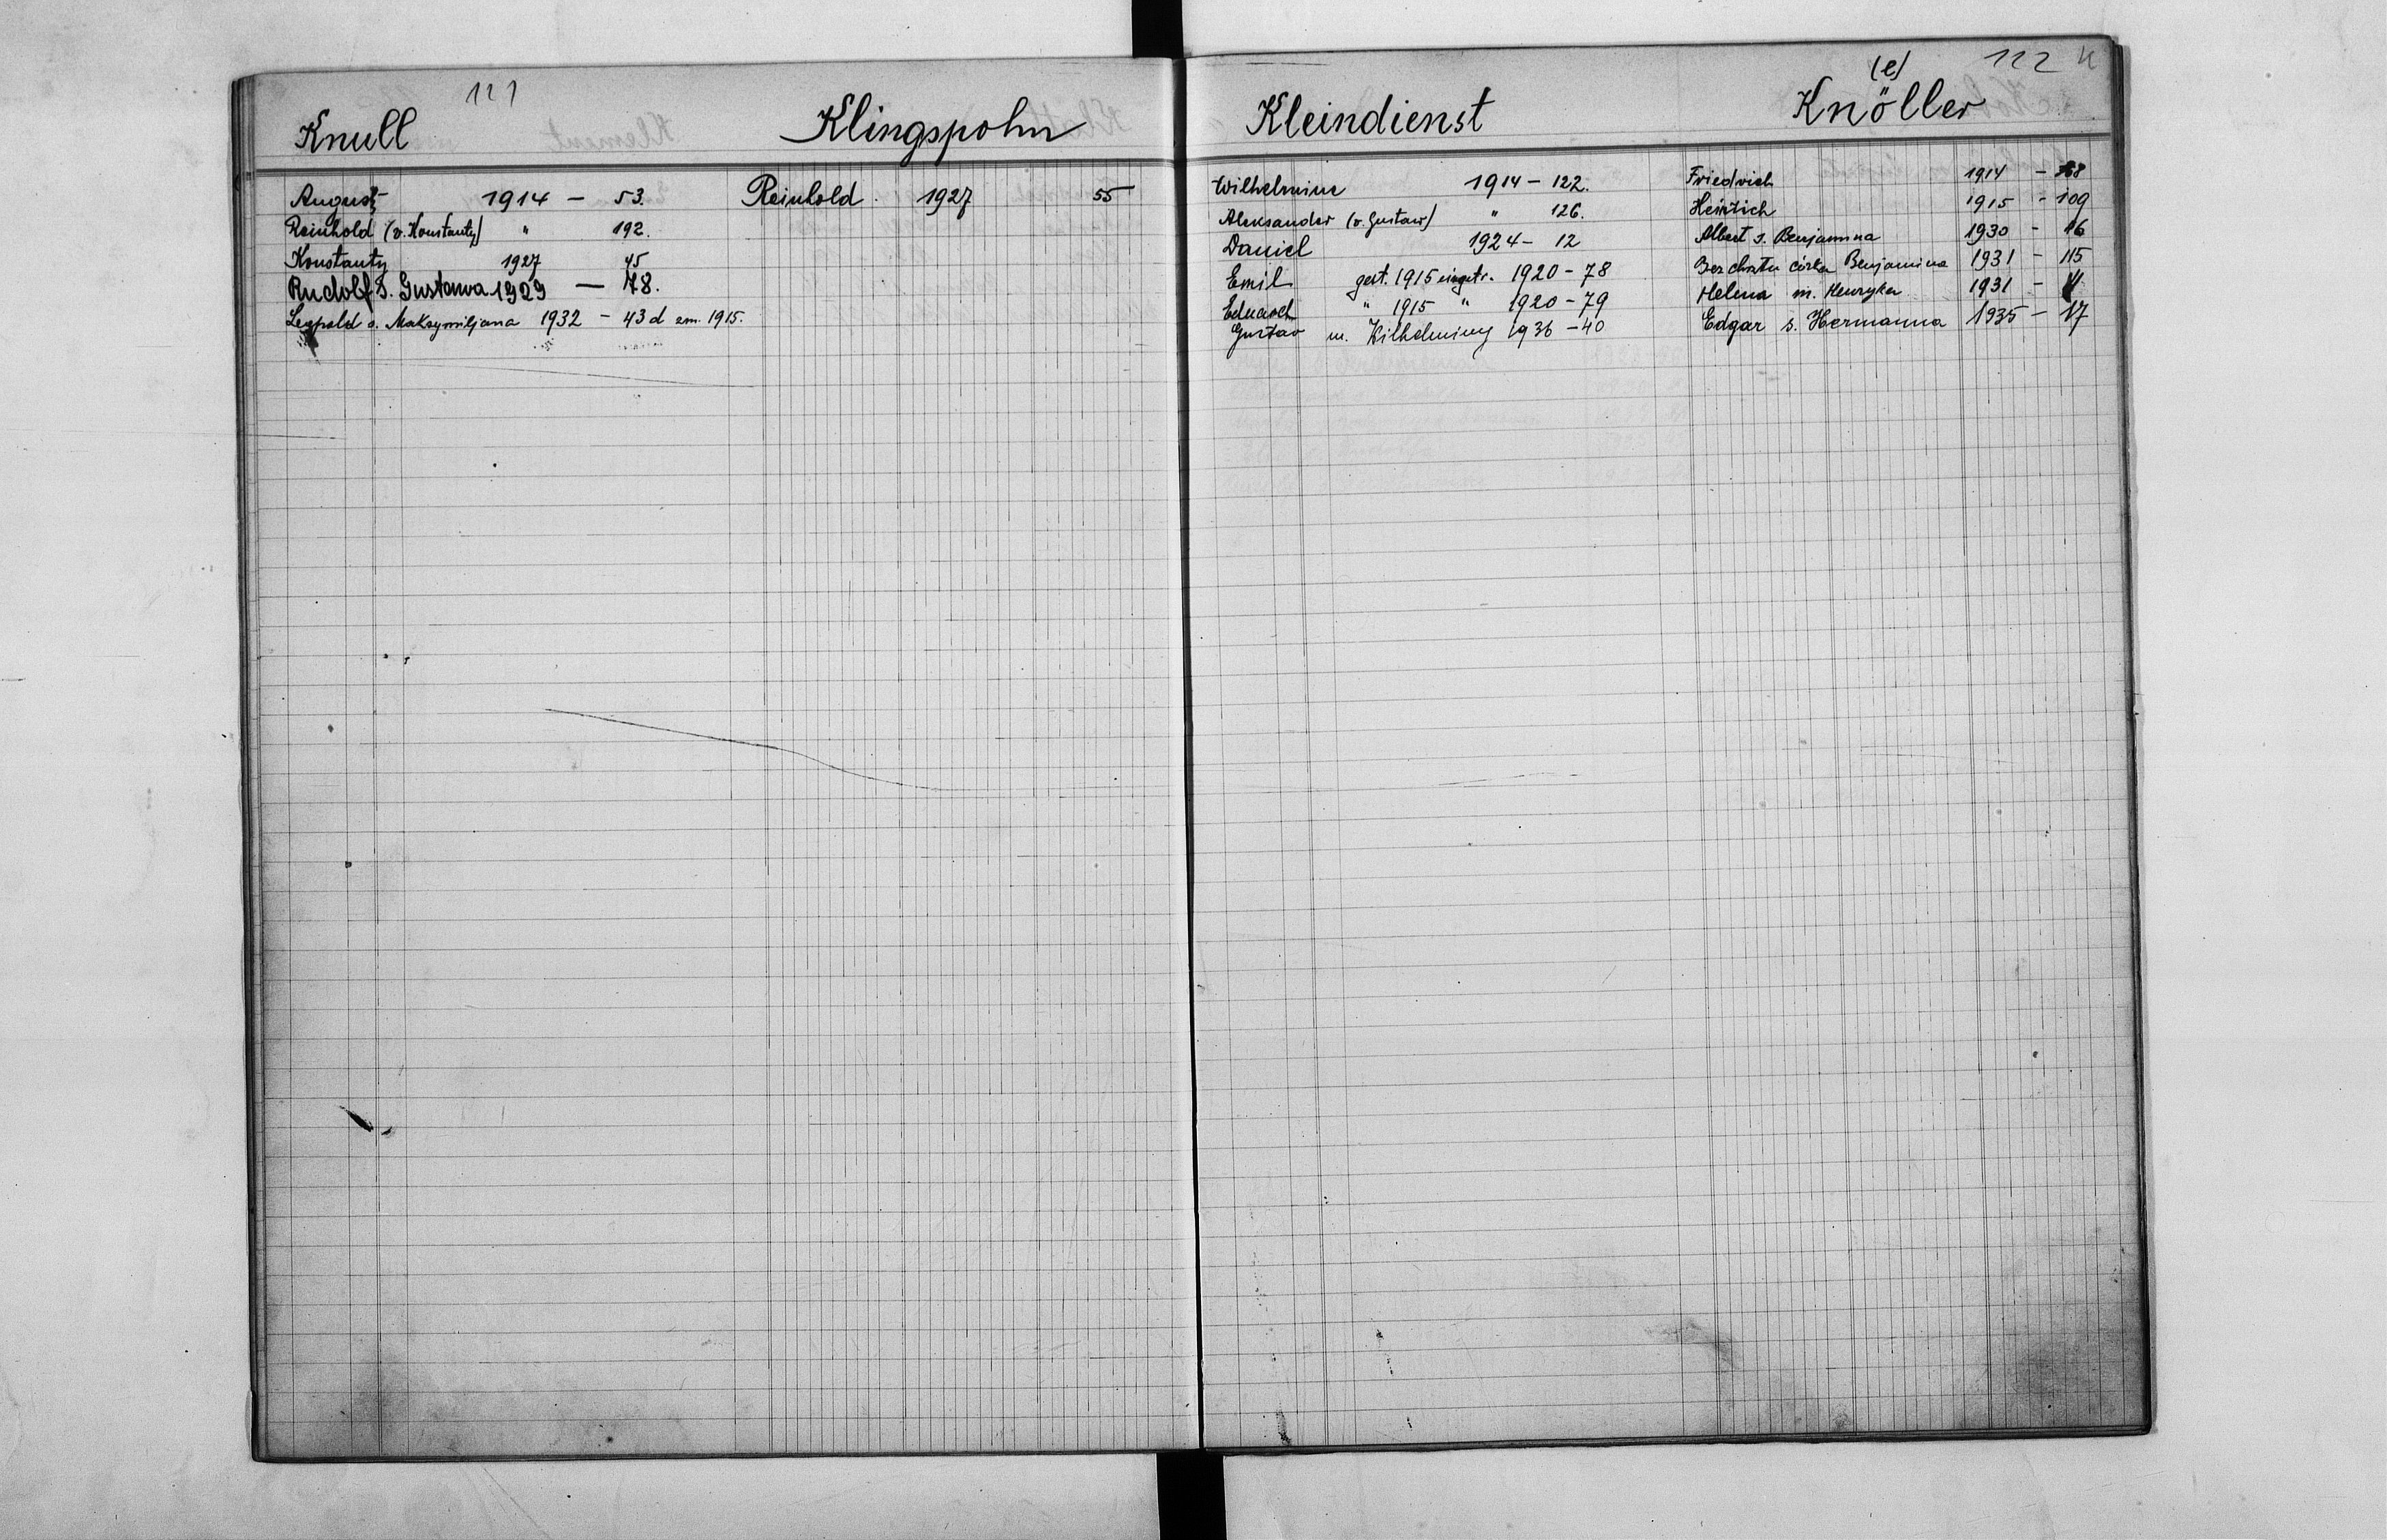 111
Knull
August 1914 - 53.
Reinhold (v. Konstanty) " 192.
Konstanty 1927 45
Rudolf S. Gustawa 1929 — 78.
Leopold s. Maksymiljana 1932 - 43d zm. 1915.
Klingspohn
Reinhold 1927 55
112 K
Kleindienst
Wilhelmine 1914 - 122.
Aleksander (v. Gustaw) " 126.
Daniel 1924 - 12
Emil gest. 1915 eingetr. 1920 - 78
Eduard " 1915 " 1920 - 79
Gustav m. Wilhelminy 1936 - 40
(e)
Knöller
Friedrich 1914 - 168
Heinrich 1915 - 109
Albert s. Benjamina 1930 - 16
Bez chrztu córka Benjamina 1931 - 115
Helena m. Henryka 1931 -
Edgar s. Hermanna 1935 - 17